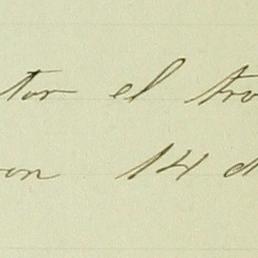 tor el tro
ron 14 d